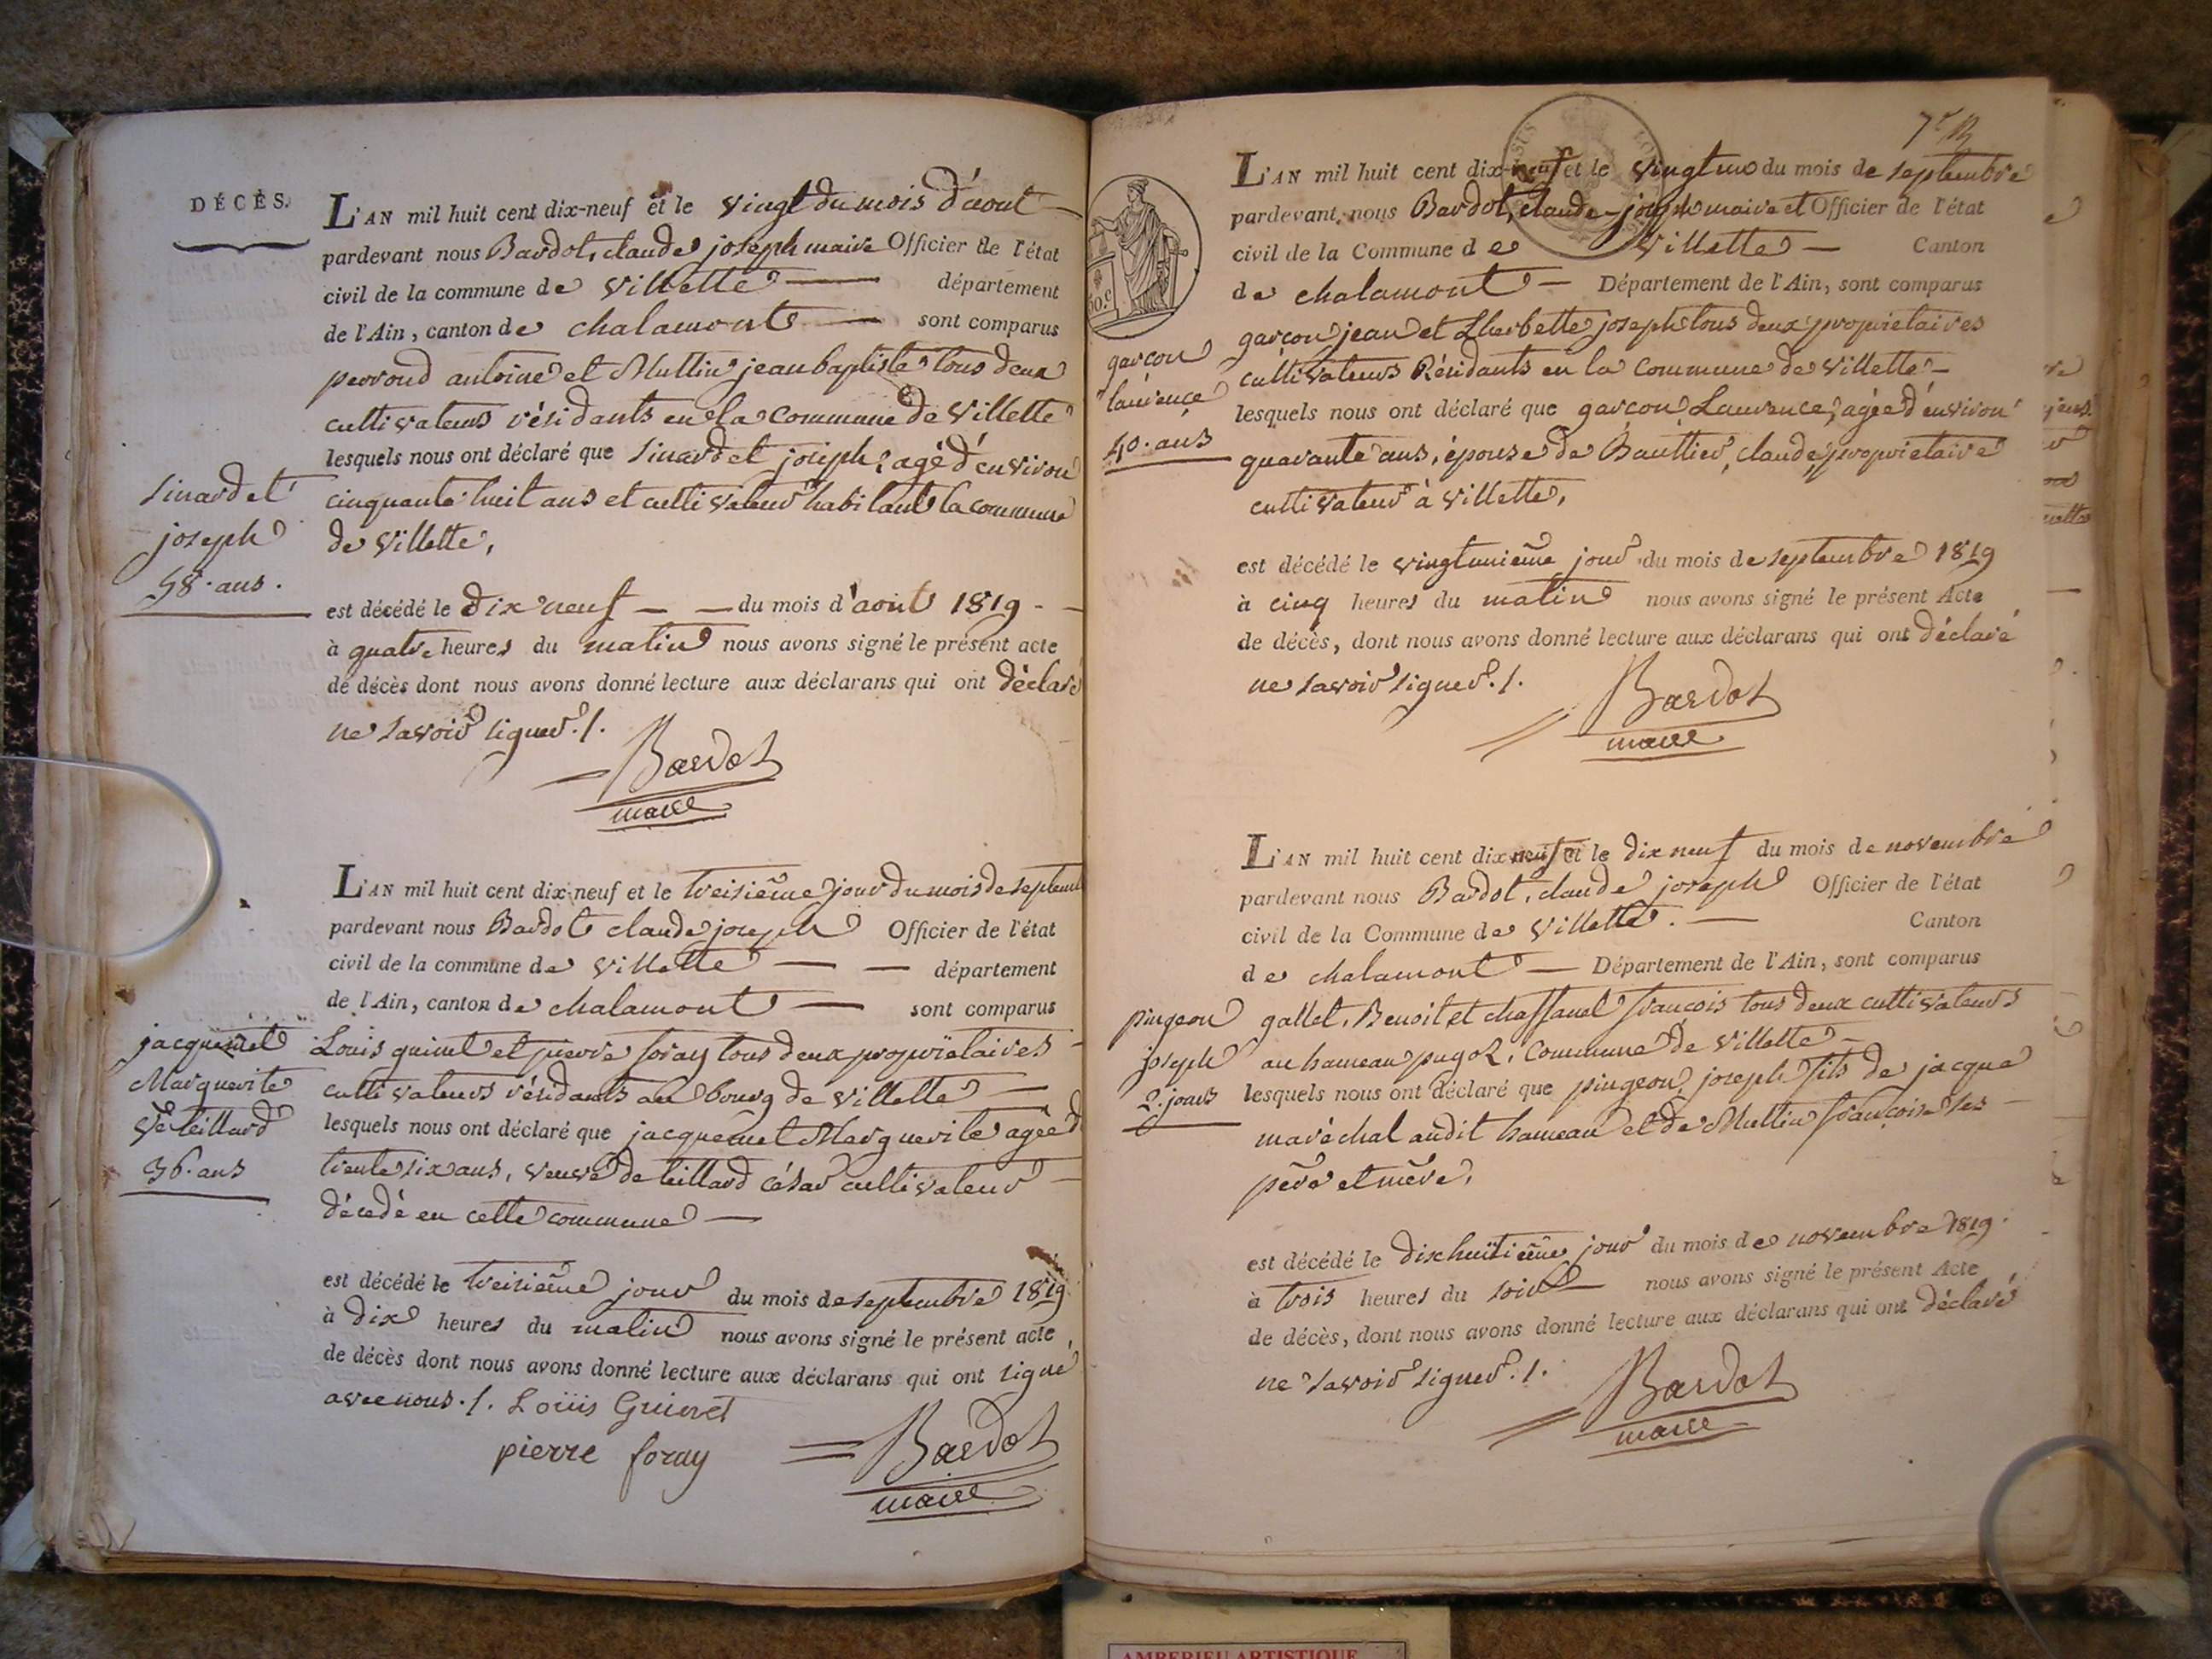 DÉCÈS.
L'AN mil huit cent dix-neuf et le vingt du mois d'aout
pardevant nous Bardot, claude joseph maire Officier de l'état
civil de la commune de Villette département
de l'Ain, canton de chalamont sont comparus
perroud antoine et Mullin jean baptiste tous deux
cultivateurs résidants en la commune de Villette
lesquels nous ont déclaré que Sinardet joseph, agé d'environ
cinquante huit ans et cultivateur habitant la commune
de Villette,
Sinardet
joseph
58. ans.
est décédé le dix neuf du mois d'aout 1819
à quatre heures du matin nous avons signé le présent acte
de décès dont nous avons donné lecture aux déclarans qui ont déclaré
ne savoir signer./.
Bardot
maire
L'AN mil huit cent dix-neuf et le treisième jour du mois de septemb
pardevant nous Bardot claude joseph Officier de l'état
civil de la commune de Villette département
de l'Ain, canton de chalamont sont comparus
jacquemet
Marguerite
ve teillard
36. ans
Louis guinet et pierre foray tous deux propriétaires
cultivateurs résidants au bourg de Villette
lesquels nous ont déclaré que jacquemet Marguerite agée d
trente six ans, veuve de teillard César cultivateur
décédé en cette commune
est décédé le treisième jour du mois de septembre 1819
à dix heures du matin nous avons signé le présent acte
de décès dont nous avons donné lecture aux déclarans qui ont signé
avec nous./. Loüis Guinet
pierre foray
Bardot
maire
7e
L'AN mil huit cent dix-neuf et le vingt un du mois de septembre
pardevant nous Bardot, claude joseph maire et Officier de l'état
civil de la Commune de Villette Canton
de chalamont Département de l'Ain, sont comparus
garcon jean et Lherbette joseph tous deux propriétaires
cultivateurs Résidants en la commune de Villette
lesquels nous ont déclaré que garcon Laurence, agée d'environ
quarante ans, épouse de Bauttier, claude, propriétaire
cultivateur à Villette,
50.c
garcon
laurence
40. ans
est décédé le vingtunième jour du mois de septembre 1819
à cinq heures du matin nous avons signé le présent Acte
de décès, dont nous avons donné lecture aux déclarans qui ont déclaré
ne savoir signer./.
Bardot
maire
L'AN mil huit cent dix neuf et le dix neuf du mois de novembre
pardevant nous Bardot, claude joseph Officier de l'état
civil de la Commune de Villette. Canton
de chalamont Département de l'Ain, sont comparus
pingeon
joseph
2. jours
gallet, Benoit et chassanel francois tous deux cultivateurs
au hameau pugoz, commune de Villette
lesquels nous ont déclaré que pingeon, joseph fils de jacque
maréchal audit hameau et de Mullin françoise ses
père et mère,
est décédé le dixhuitième jour du mois de novembre 1819.
à trois heures du soir nous avons signé le présent Acte
de décès, dont nous avons donné lecture aux déclarans qui ont déclaré
ne savoir signer./.
Bardot
maire
AMBERIEU ARTISTIQUE